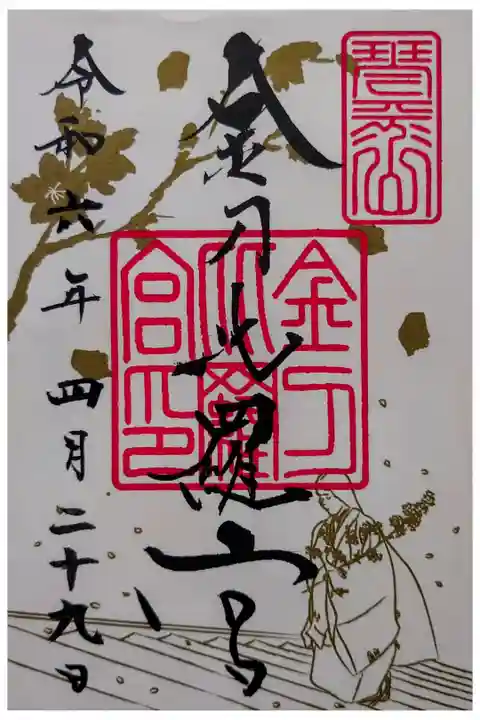 琴平山
金刀比羅宮
金刀比羅宮印
令和六年四月二十九日